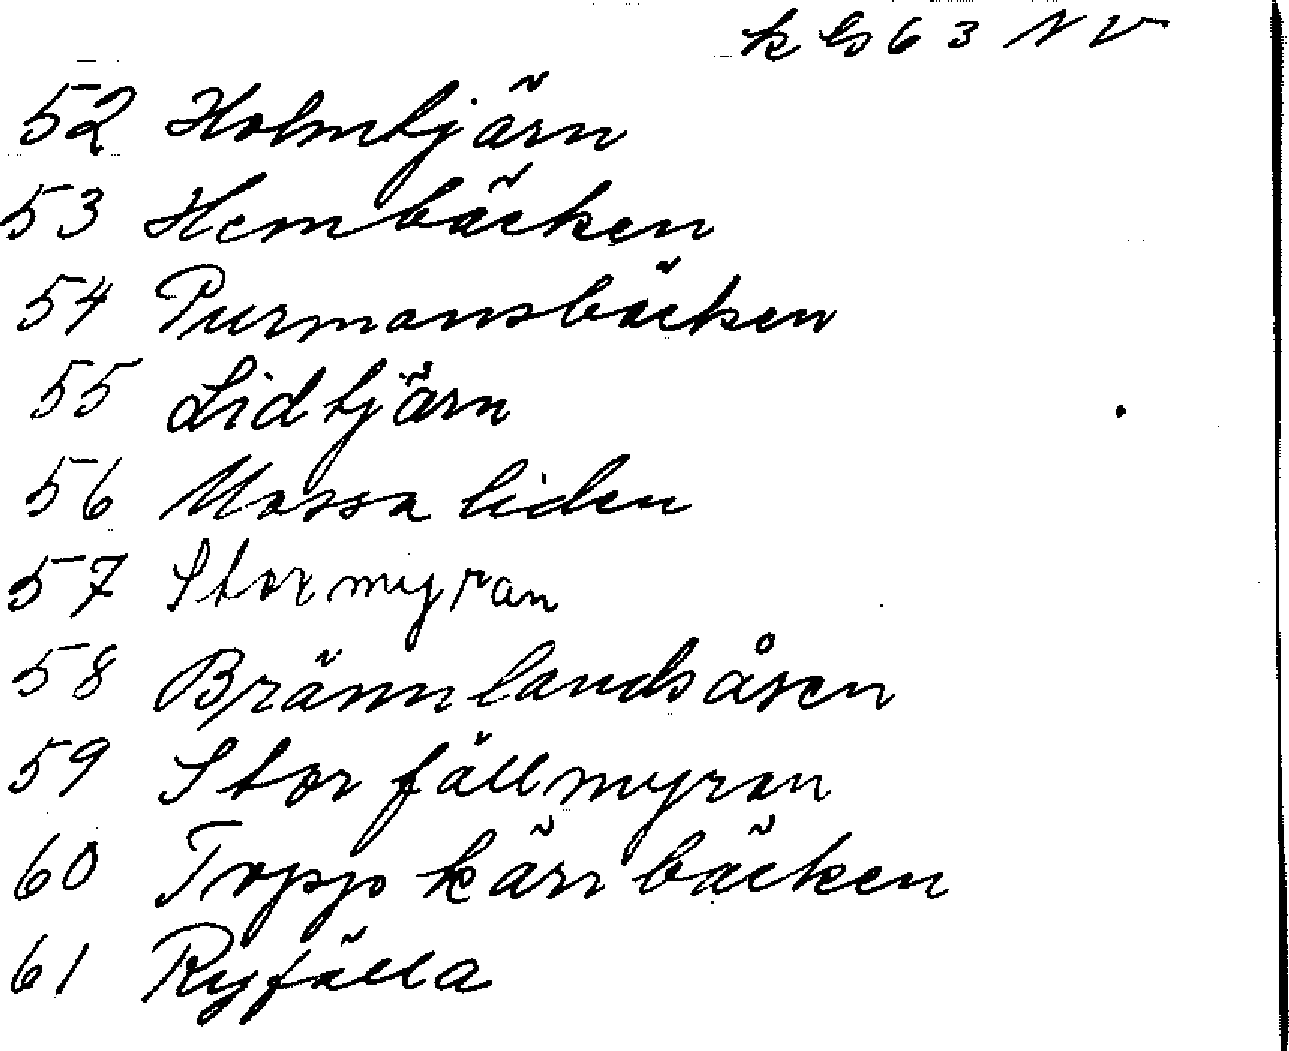 63 NV
52 Holmtjärn
53 Hembäcken
54 Purmansbäcken
55 Lidtjärn
56 Mossaliden
57 Stormyran
58 Brännlandsåsen
59 Storfällmyran
60 Toppkärrbäcken
61 Ryfälla